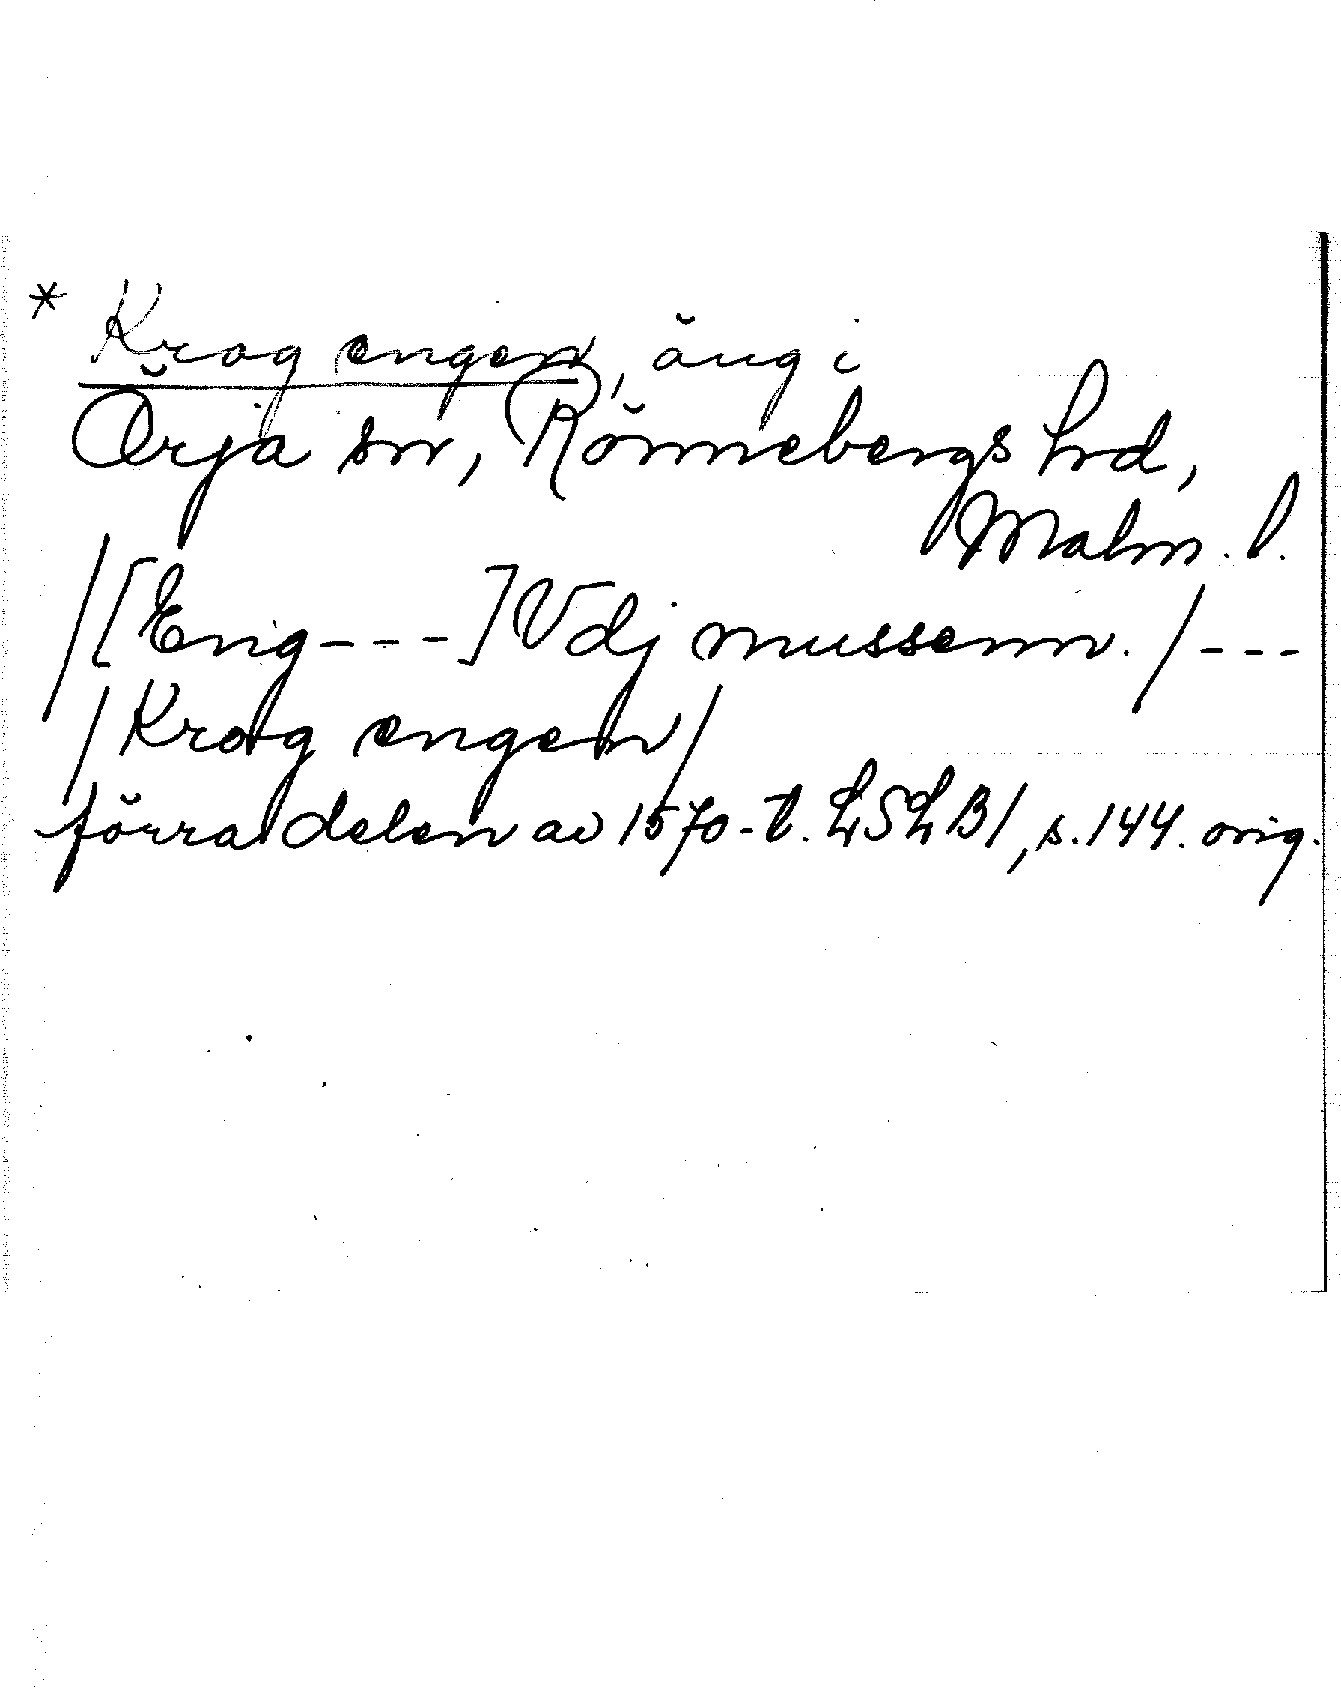 * Krog engen, äng i
Örja sn, Rönnebergs hrd,
Malm. l.
/[Eng---] Vdj mussenn. /---
/Krog engen/
förra delen av 1570-t. LSLB1, s. 144. orig.